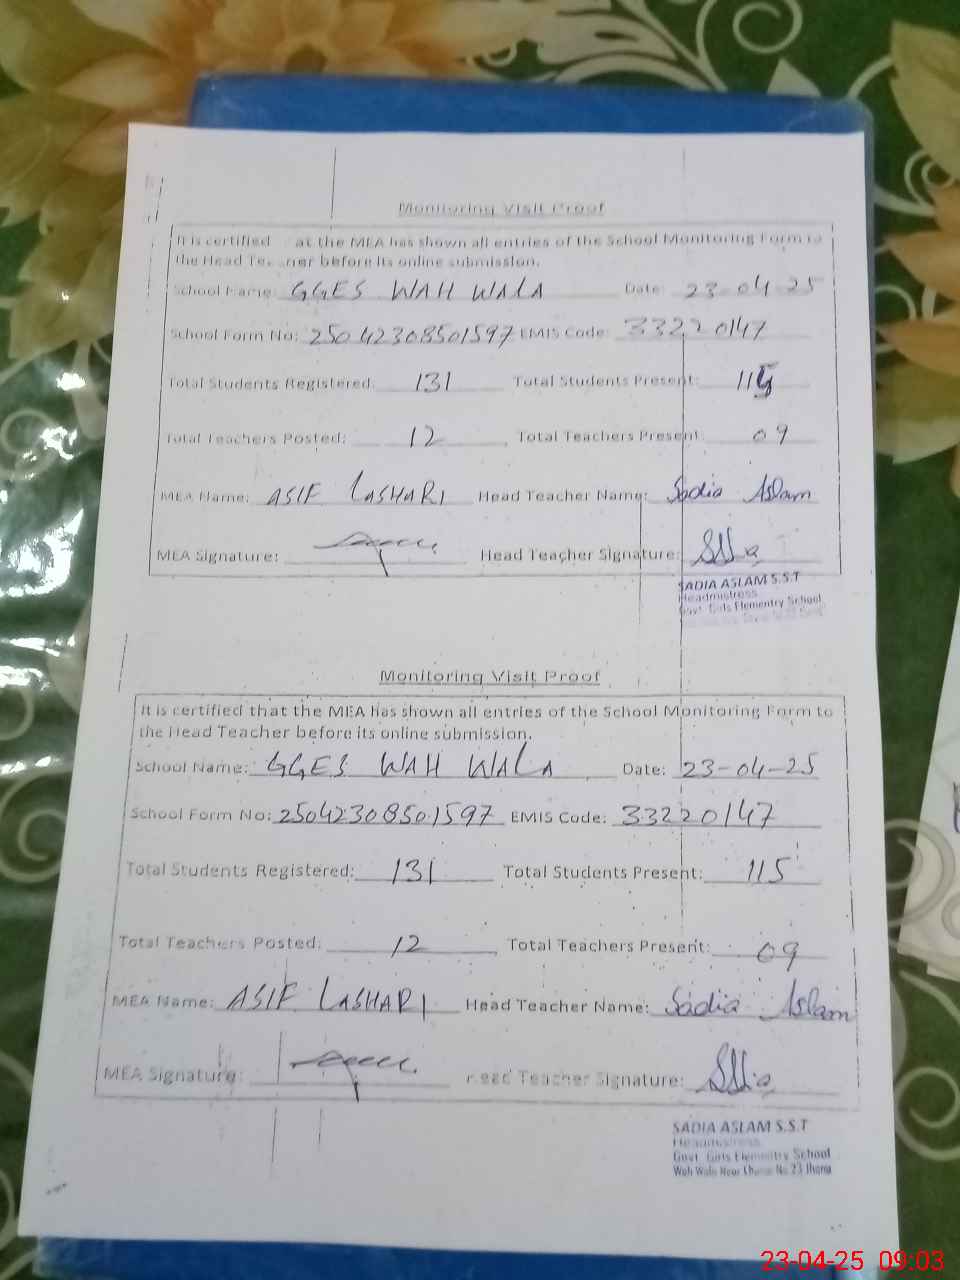 Monitoring Visit Proof
It is certified at the MEA has shown all entries of the School Monitoring Form to
the Head Teacher before its online submission.
School Name: GGES WAH WALA Date: 23-04-25
School Form No: 25042308501597 EMIS Code: 33220147
Total Students Registered: 131 Total Students Present: 115
Total Teachers Posted: 12 Total Teachers Present: 09
MEA Name: ASIF LASHARI Head Teacher Name: Sadia Aslam
MEA Signature: Head Teacher Signature:
SADIA ASLAM S.S.T
Headmistress
Govt. Girls Elementry School
Monitoring Visit Proof
It is certified that the MEA has shown all entries of the School Monitoring Form to
the Head Teacher before its online submission.
School Name: GGES WAH WALA Date: 23-04-25
School Form No: 25042308501597 EMIS Code: 33220147
Total Students Registered: 131 Total Students Present: 115
Total Teachers Posted: 12 Total Teachers Present: 09
MEA Name: ASIF LASHARI Head Teacher Name: Sadia Aslam
MEA Signature: Head Teacher Signature:
SADIA ASLAM S.S.T
Headmistress
Govt. Girls Elementry School
Wah Wala Near No.23 Jhang
23-04-25 09:03